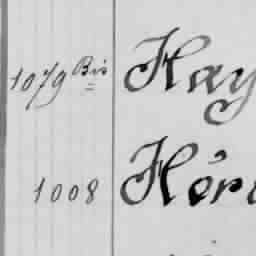 1079 Bis Hay
1008 Hér